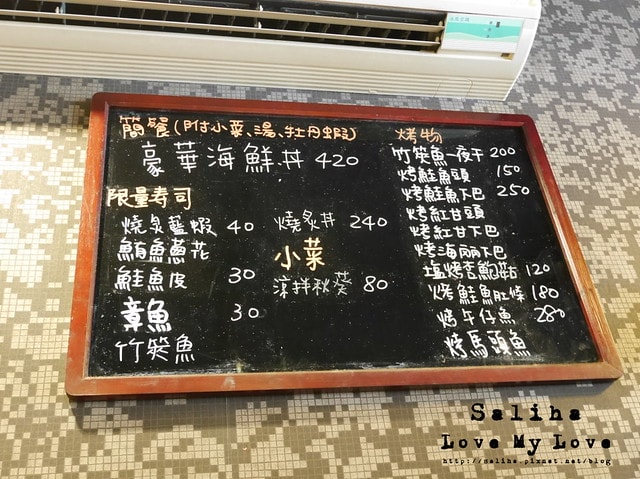 簡餐(附小菜、湯、牡丹蝦)
豪華海鮮丼 420
限量壽司
燒炙藍蝦 40
鮪魚蔥花
鮭魚皮 30
章魚 30
竹筴魚
燒炙丼 240
小菜
涼拌秋葵 80
烤物
竹筴魚一夜干 200
烤鮭魚頭 150
烤鮭魚下巴 250
烤紅甘頭
烤紅甘下巴
烤海鱺下巴
塩烤杏鮑菇 120
烤鮭魚肚條 180
烤牛仔魚 280
烤馬頭魚
Saliha
Love My Love
http://saliha.pixnet.net/blog